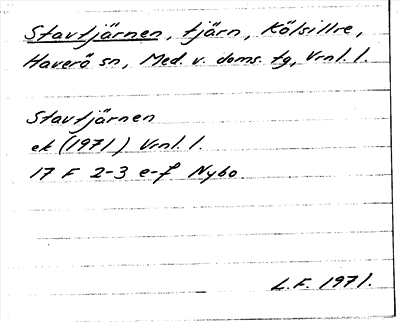 Stavtjärnen, tjärn, Kölsillre,
Haverö sn, Med. v. doms. tg, Vrnl. l.
Stavtjärnen
ek (1971) Vrnl. l.
17 F 2-3 e-f Nybo
L.F. 1971.